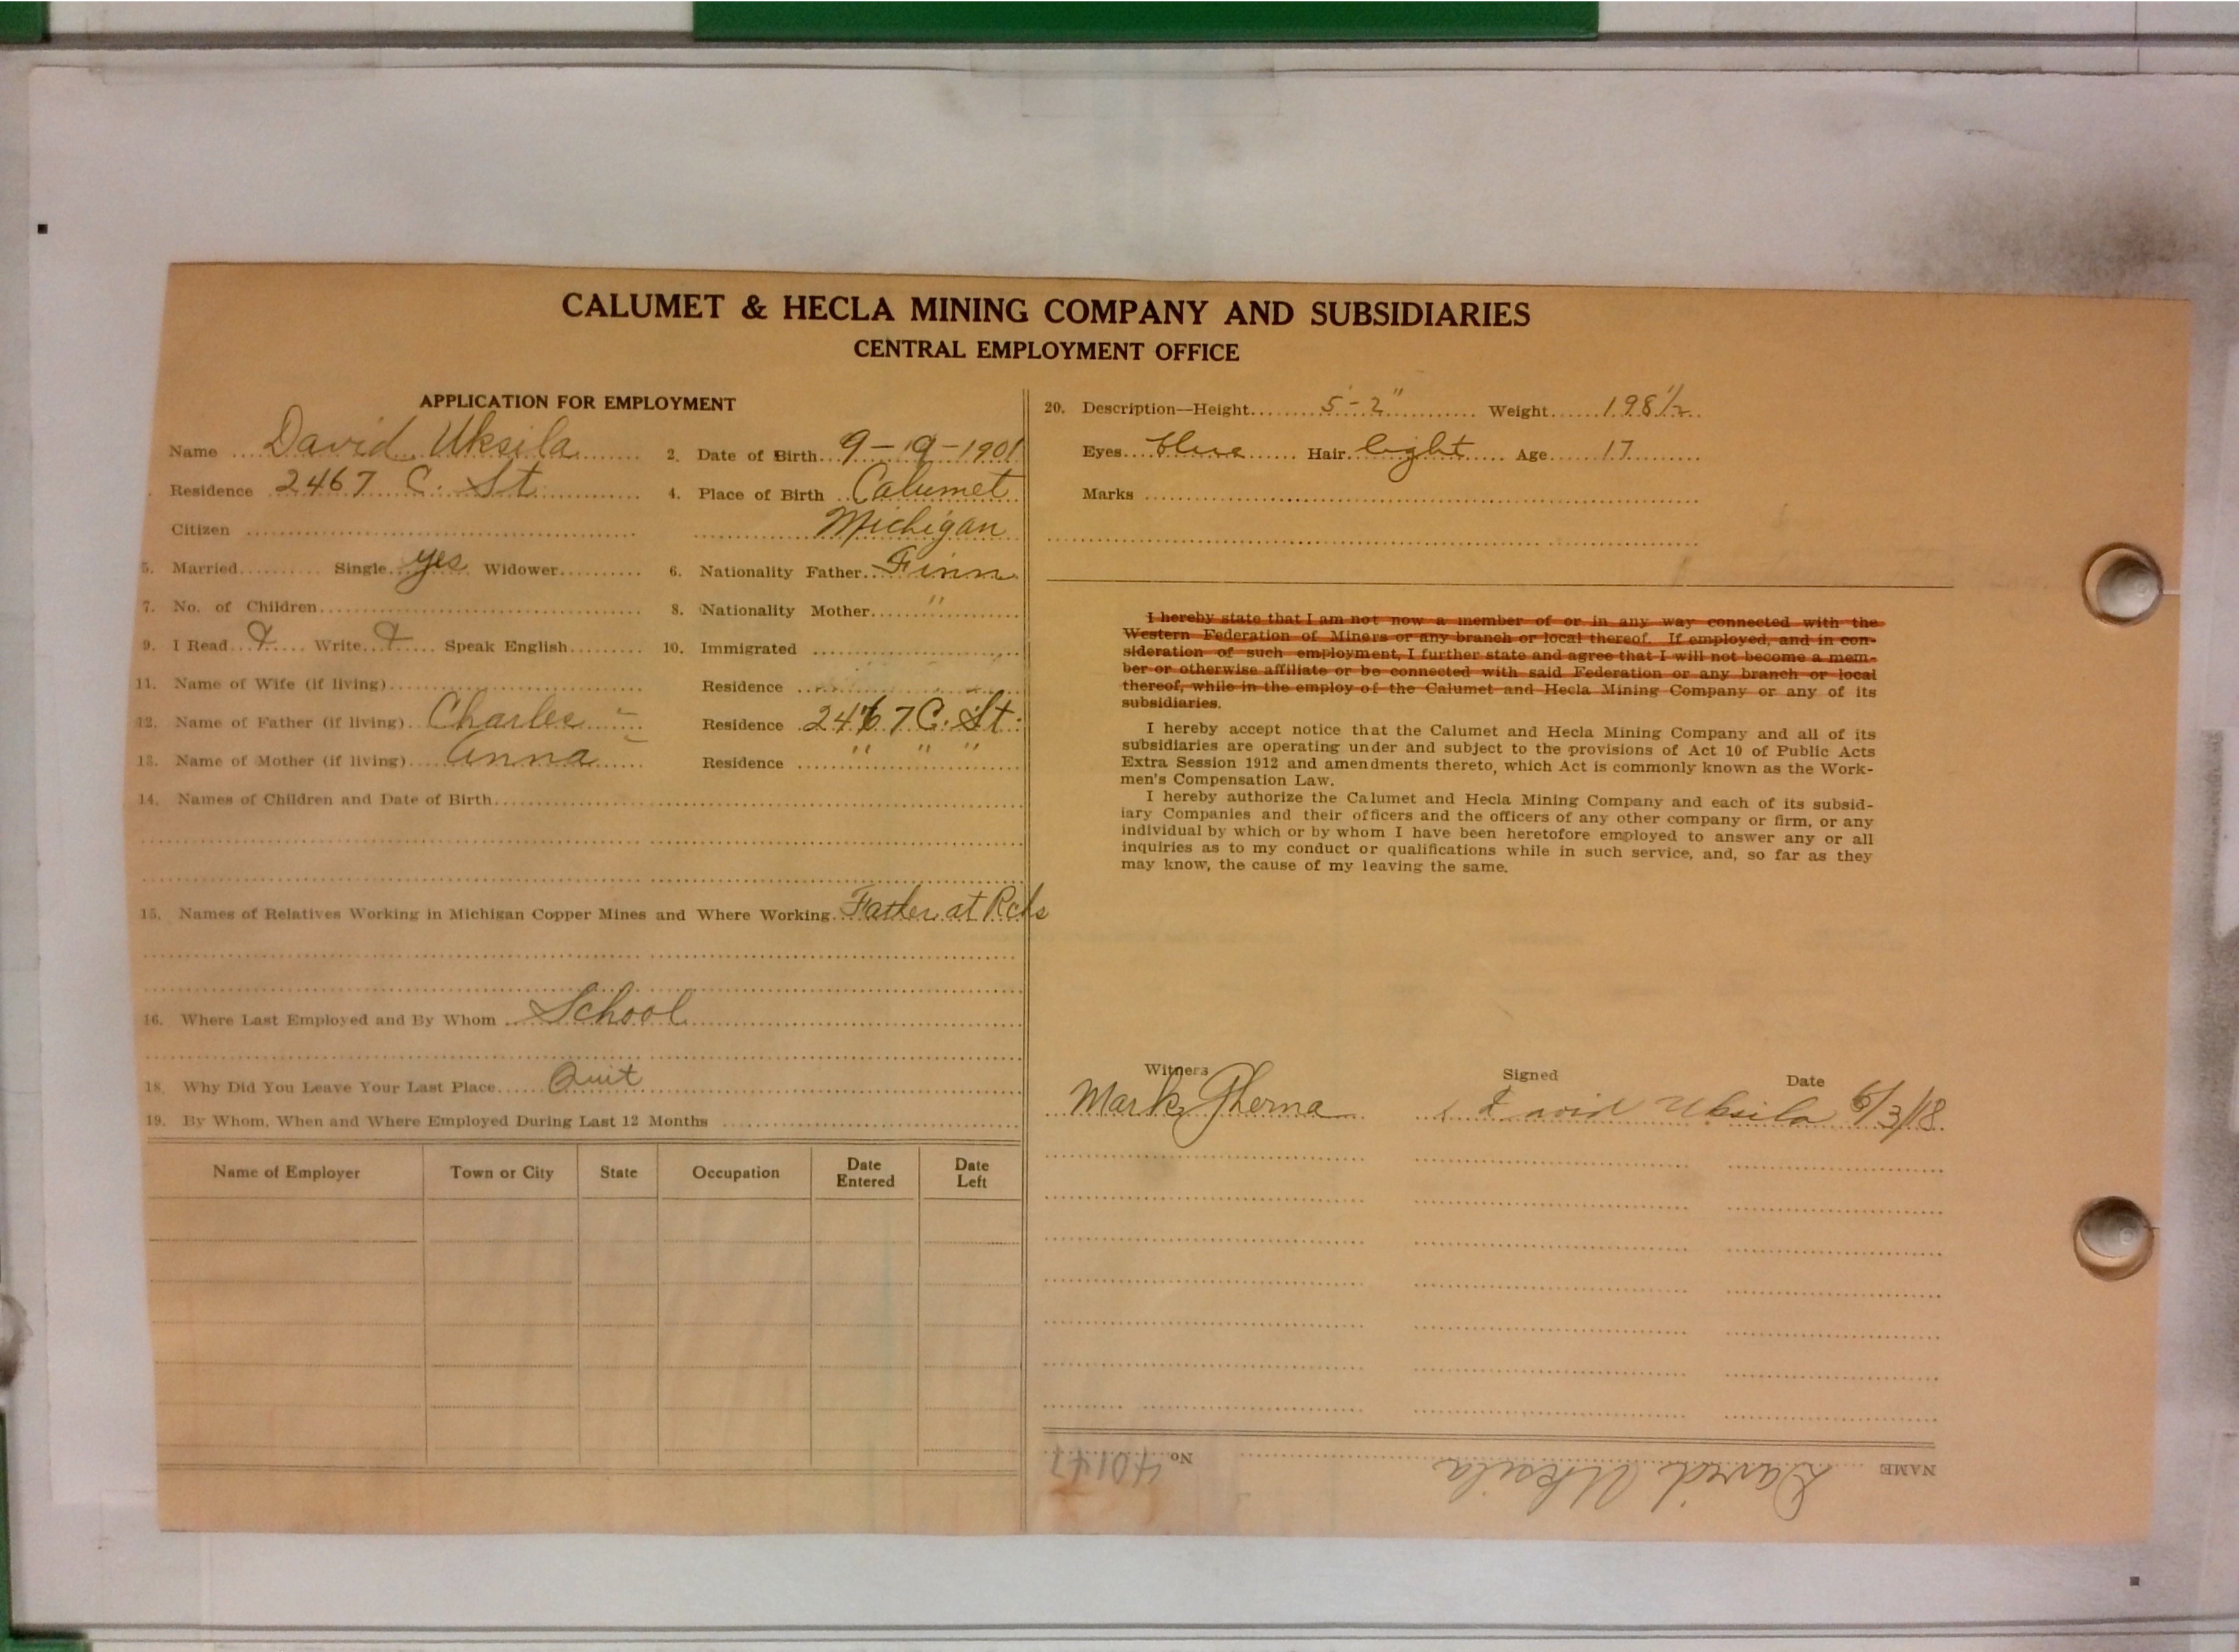 CALUMET & HECLA MINING COMPANY AND SUBSIDIARIES
CENTRAL EMPLOYMENT OFFICE
APPLICATION FOR EMPLOYMENT
Name David Uksila 2. Date of Birth 9-19-1901
Residence 2467 C. St 4. Place of Birth Calumet
Citizen Michigan
5. Married Single yes Widower 6. Nationality Father Finn
7. No. of Children 8. Nationality Mother "
9. I Read Write Speak English 10. Immigrated
11. Name of Wife (if living) Residence
12. Name of Father (if living) Charles Residence 2467 C. St.
13. Name of Mother (if living) Anna Residence " " "
14. Names of Children and Date of Birth
15. Names of Relatives Working in Michigan Copper Mines and Where Working Father at
16. Where Last Employed and By Whom School
18. Why Did You Leave Your Last Place Quit
19. By Whom, When and Where Employed During Last 12 Months
Name of Employer Town or City State Occupation Date Entered Date Left
20. Description—Height 5'-2" Weight 198 1/2
Eyes blue Hair light Age 17
Marks
I hereby state that I am not now a member of or in any way connected with the
Western Federation of Miners or any branch or local thereof. If employed, and in con-
sideration of such employment, I further state and agree that I will not become a mem-
ber or otherwise affiliate or be connected with said Federation or any branch or local
thereof, while in the employ of the Calumet and Hecla Mining Company or any of its
subsidiaries.
I hereby accept notice that the Calumet and Hecla Mining Company and all of its
subsidiaries are operating under and subject to the provisions of Act 10 of Public Acts
Extra Session 1912 and amendments thereto, which Act is commonly known as the Work-
men's Compensation Law.
I hereby authorize the Calumet and Hecla Mining Company and each of its subsid-
iary Companies and their officers and the officers of any other company or firm, or any
individual by which or by whom I have been heretofore employed to answer any or all
inquiries as to my conduct or qualifications while in such service, and, so far as they
may know, the cause of my leaving the same.
Witness Signed Date
Mark Gherna David Uksila 6/3/18
NAME David Uksila No. 40147